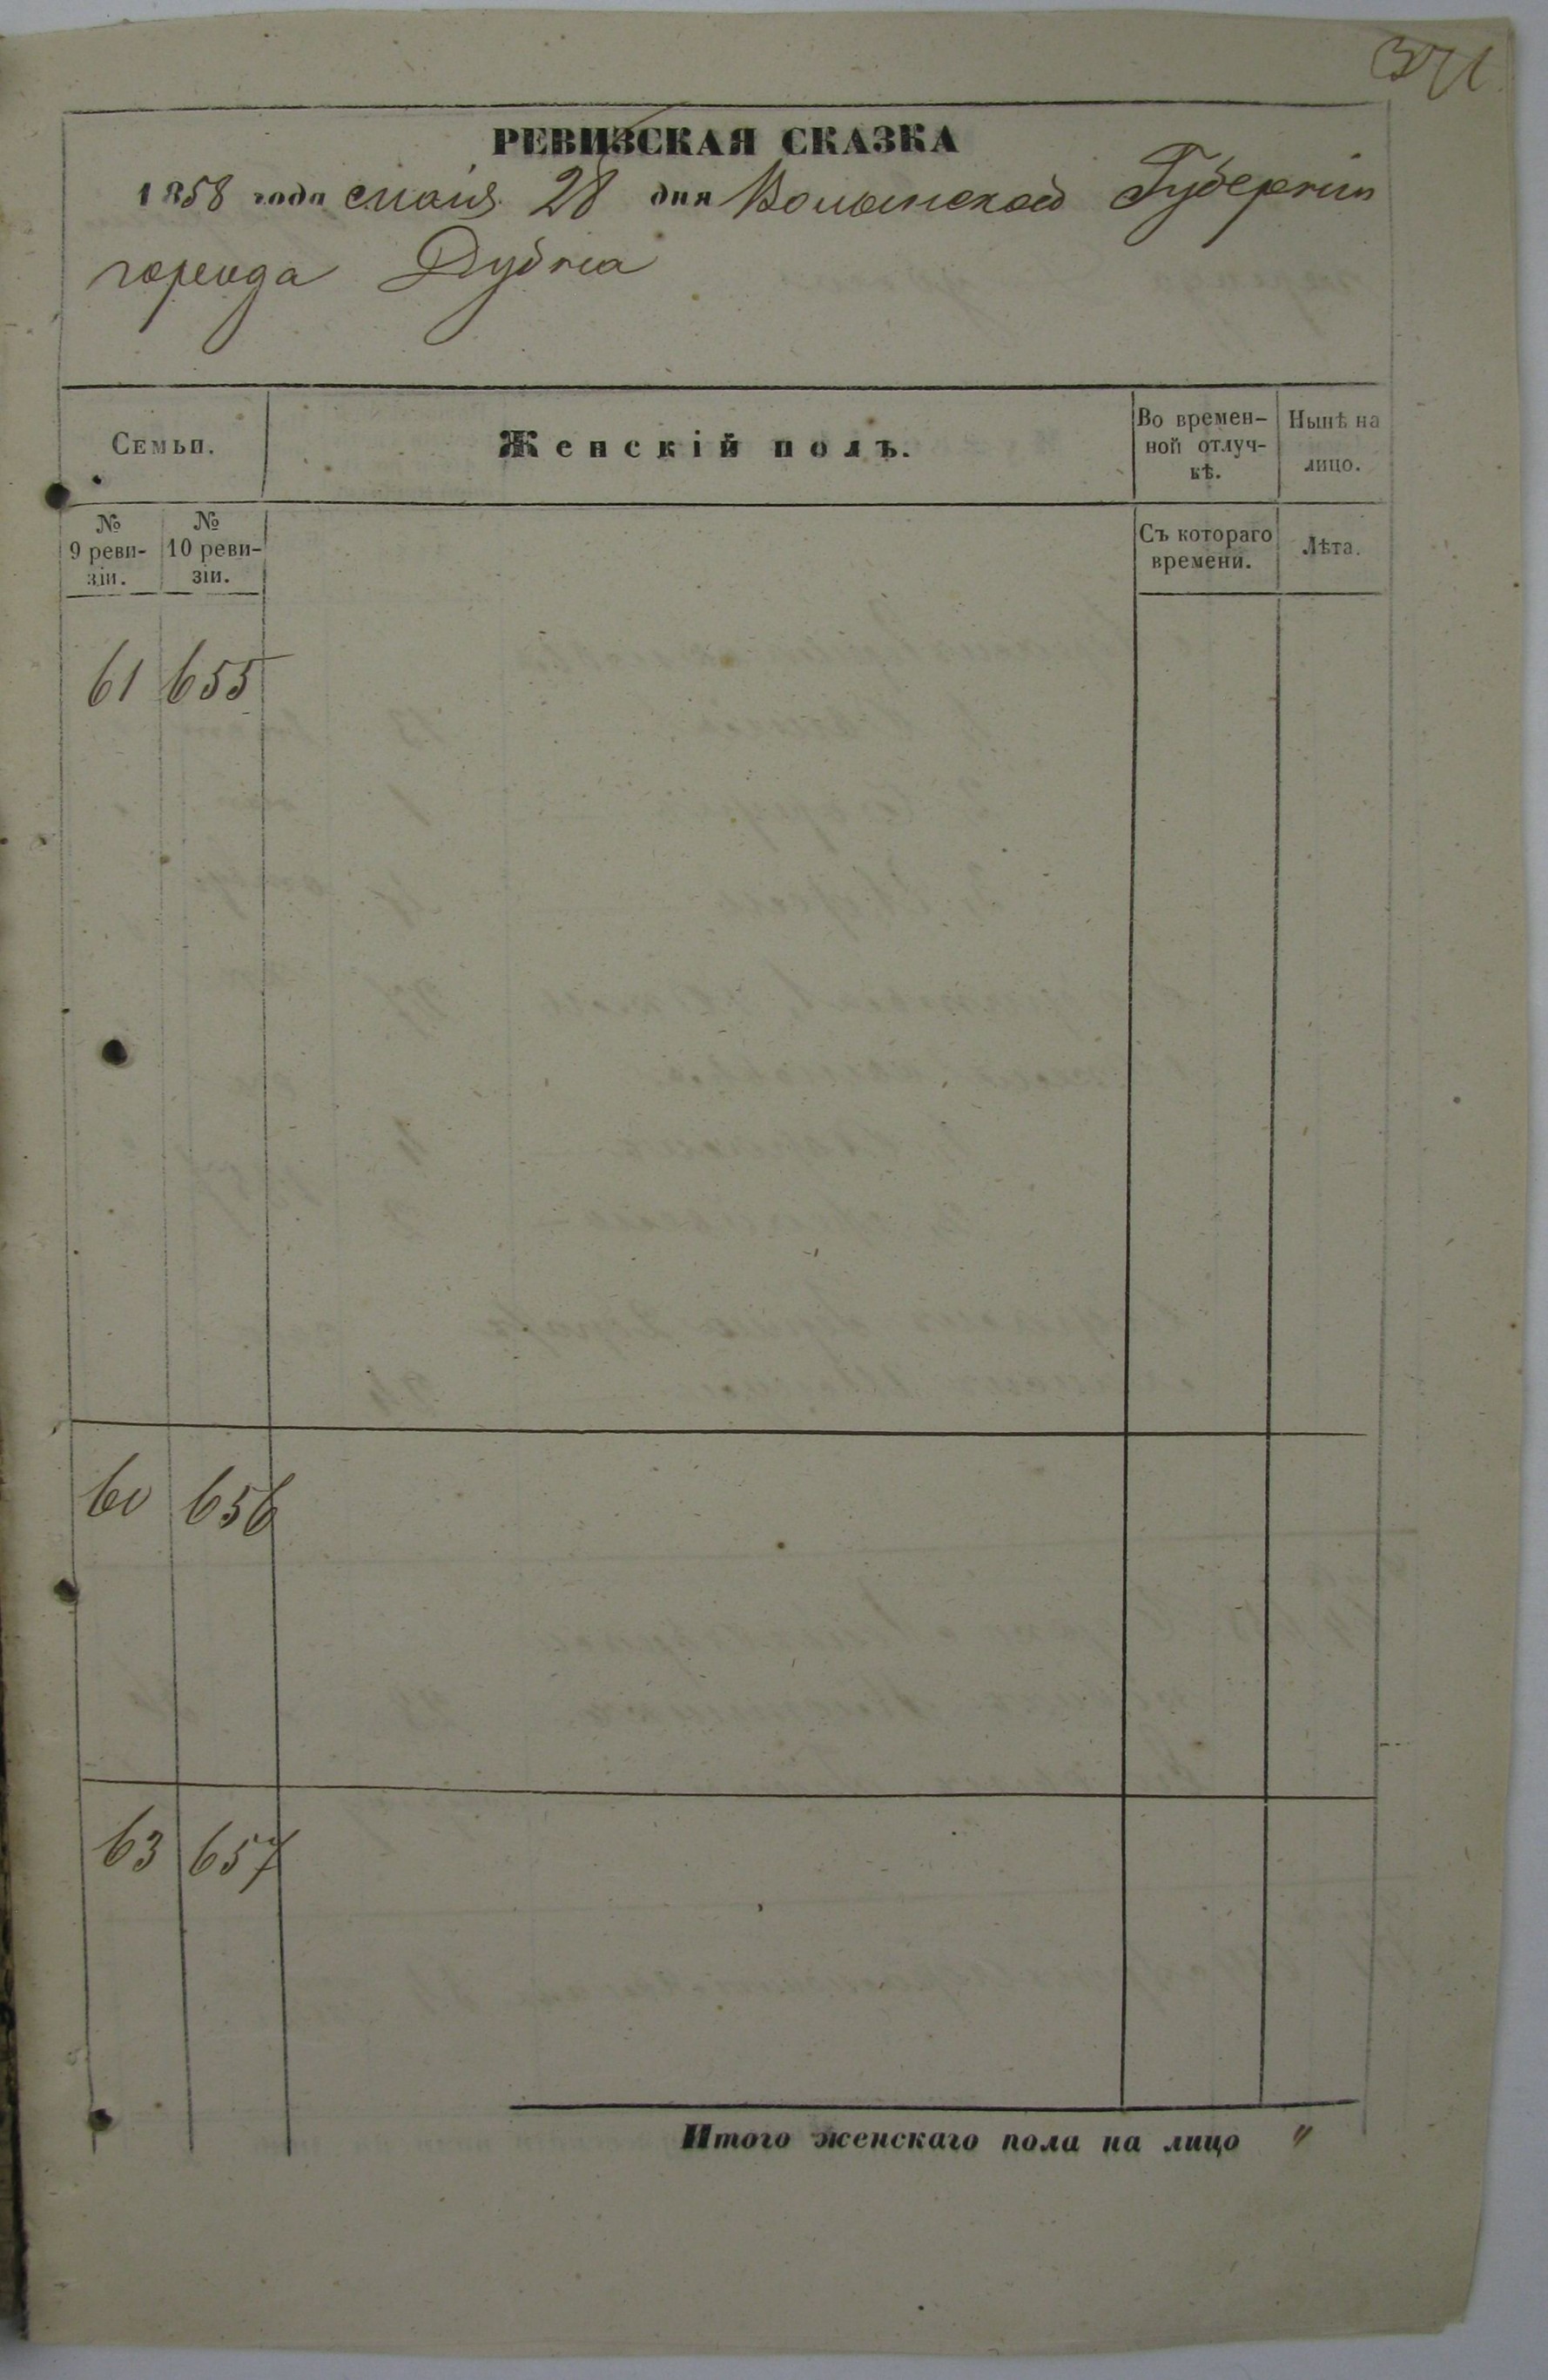 371
РЕВИЗСКАЯ СКАЗКА
1858 года маія 28 дня Волынской Губерніи
города Дубна
Семьи.
Женскій полъ.
Во времен-
ной отлуч-
кѣ.
Нынѣ на
лицо.
№
9 реви-
зіи.
№
10 реви-
зіи.
Съ котораго
времени.
Лѣта.
61 655
60 656
63 657
Итого женскаго пола на лицо "